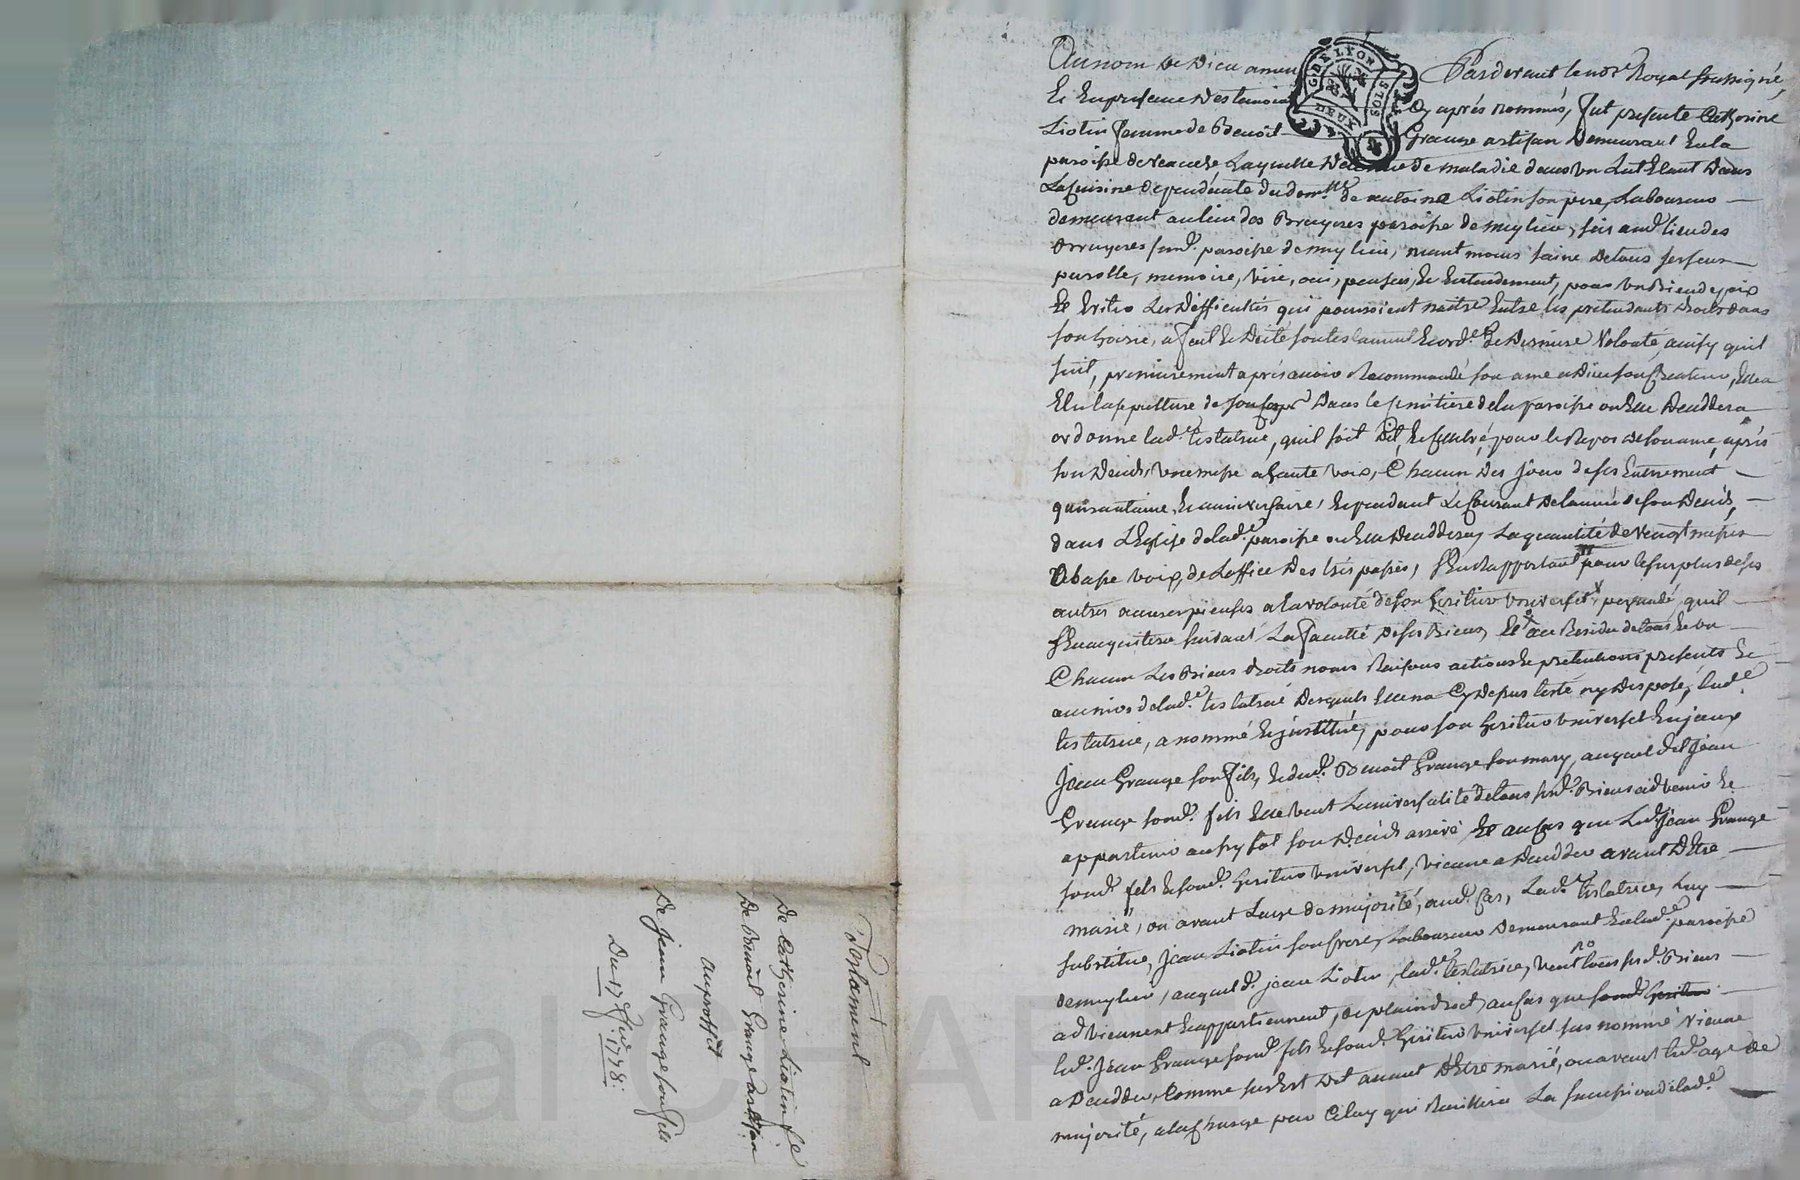 Testament
De Catherine Liotin fe
De Benoit Grange artisan
au proffit
De Jean Grange son fils
Du 17 1778.
G. DE LYON
DEUX SOLS
Au nom De Dieu amen Pardevant le no.re Royal soussigné,
Et En presence Des temoins Cy aprés nommés, fut presente Catherine
Liotin femme de Benoit Grange artisan Demeurant En la
paroisse de Laquelle De maladie dans Un Lit Etant Dans
La Cuisine dependante du dom.lle de antoine Liotin son pere, Laboureur
demeurant au lieu des Bruyeres paroisse de mylieu, sis aud. lieu des
Bruyeres susd. paroisse de mylieu, neant moins saine De tous ses sens
parolle, memoire, Vüe, ouï, pensée, Et Entendement, pour Un Bien de paix
Et Eviter Les Difficultés qui pourroient naitre Entre les prétendants droits dans
son hoirie, a fait Et Dicté son testament Et ord.ce De Derniere Volonté, ainsy qu'il
suit, premierement aprés avoir Recommandé son ame a Dieu son Createur, Elle a
Elu la sepulture de son corps Dans le cimitiere de la paroisse ou Elle Deceddera
ordonne lad.e testatrice, qu'il soit Dit, Et celebré, pour le Repos de son ame, aprés
son Decés, Une messe a haute voix, Chacun Des jour de ses Enterrement
quarantaine, Et anniversaire, Et pendant Le Courant De l'année de son Decés,
dans L'Eglise de lad.e paroisse ou Elle Deceddera, La quantité de Vengt messes
De basse voix, de L'office Des trés passés, S'En Rapportant pour le surplus de ses
autres œuvres pieuses a la volonté de son heritier universel persuadé qu'il
S'En acquittera suivant La faculté de ses Biens, Et au Residu de tous Et un
Chacun Les Biens droits noms Raisons actions Et pretentions presents Et
avenirs de lad.e testatrice Desquels Elle n'a Cy Dessus testé ny Disposé, lad.e
testatrice, a nommé Et institué, pour son heritier universel
Jean Grange son fils, Et dud. Benoit Grange son mary, auquel dit Jean
Grange sond. fils Elle Veut L'universalité de tous sesd. Biens advenir Et
appartenir aussy tôt son Decés arrivé Et au cas que Led. Jean Grange
sond. fils Et sond. heritier universel, Vienne a Decedder avant D'Etre
marié, ou avant L'age de majorité, aud. Cas, Lad.e testatrice, Luy
substitue, Jean Liotin son frere, Laboureur Demeurant En lad.e paroisse
de mylieu, auquel d. jean Liotin, lad.e testatrice, veut tous sesd. Biens
adviennent Et appartiennent, de plain droit, au cas que sond. heritier
led. Jean Grange sond. fils Et sond. heritier universel sus nommé Vienne
a Decedder, Comme sus Est Dit avant D'Etre marié, ou avant led. age de
majorité, a la Charge par Celuy qui Recüillira La succession de lad.e